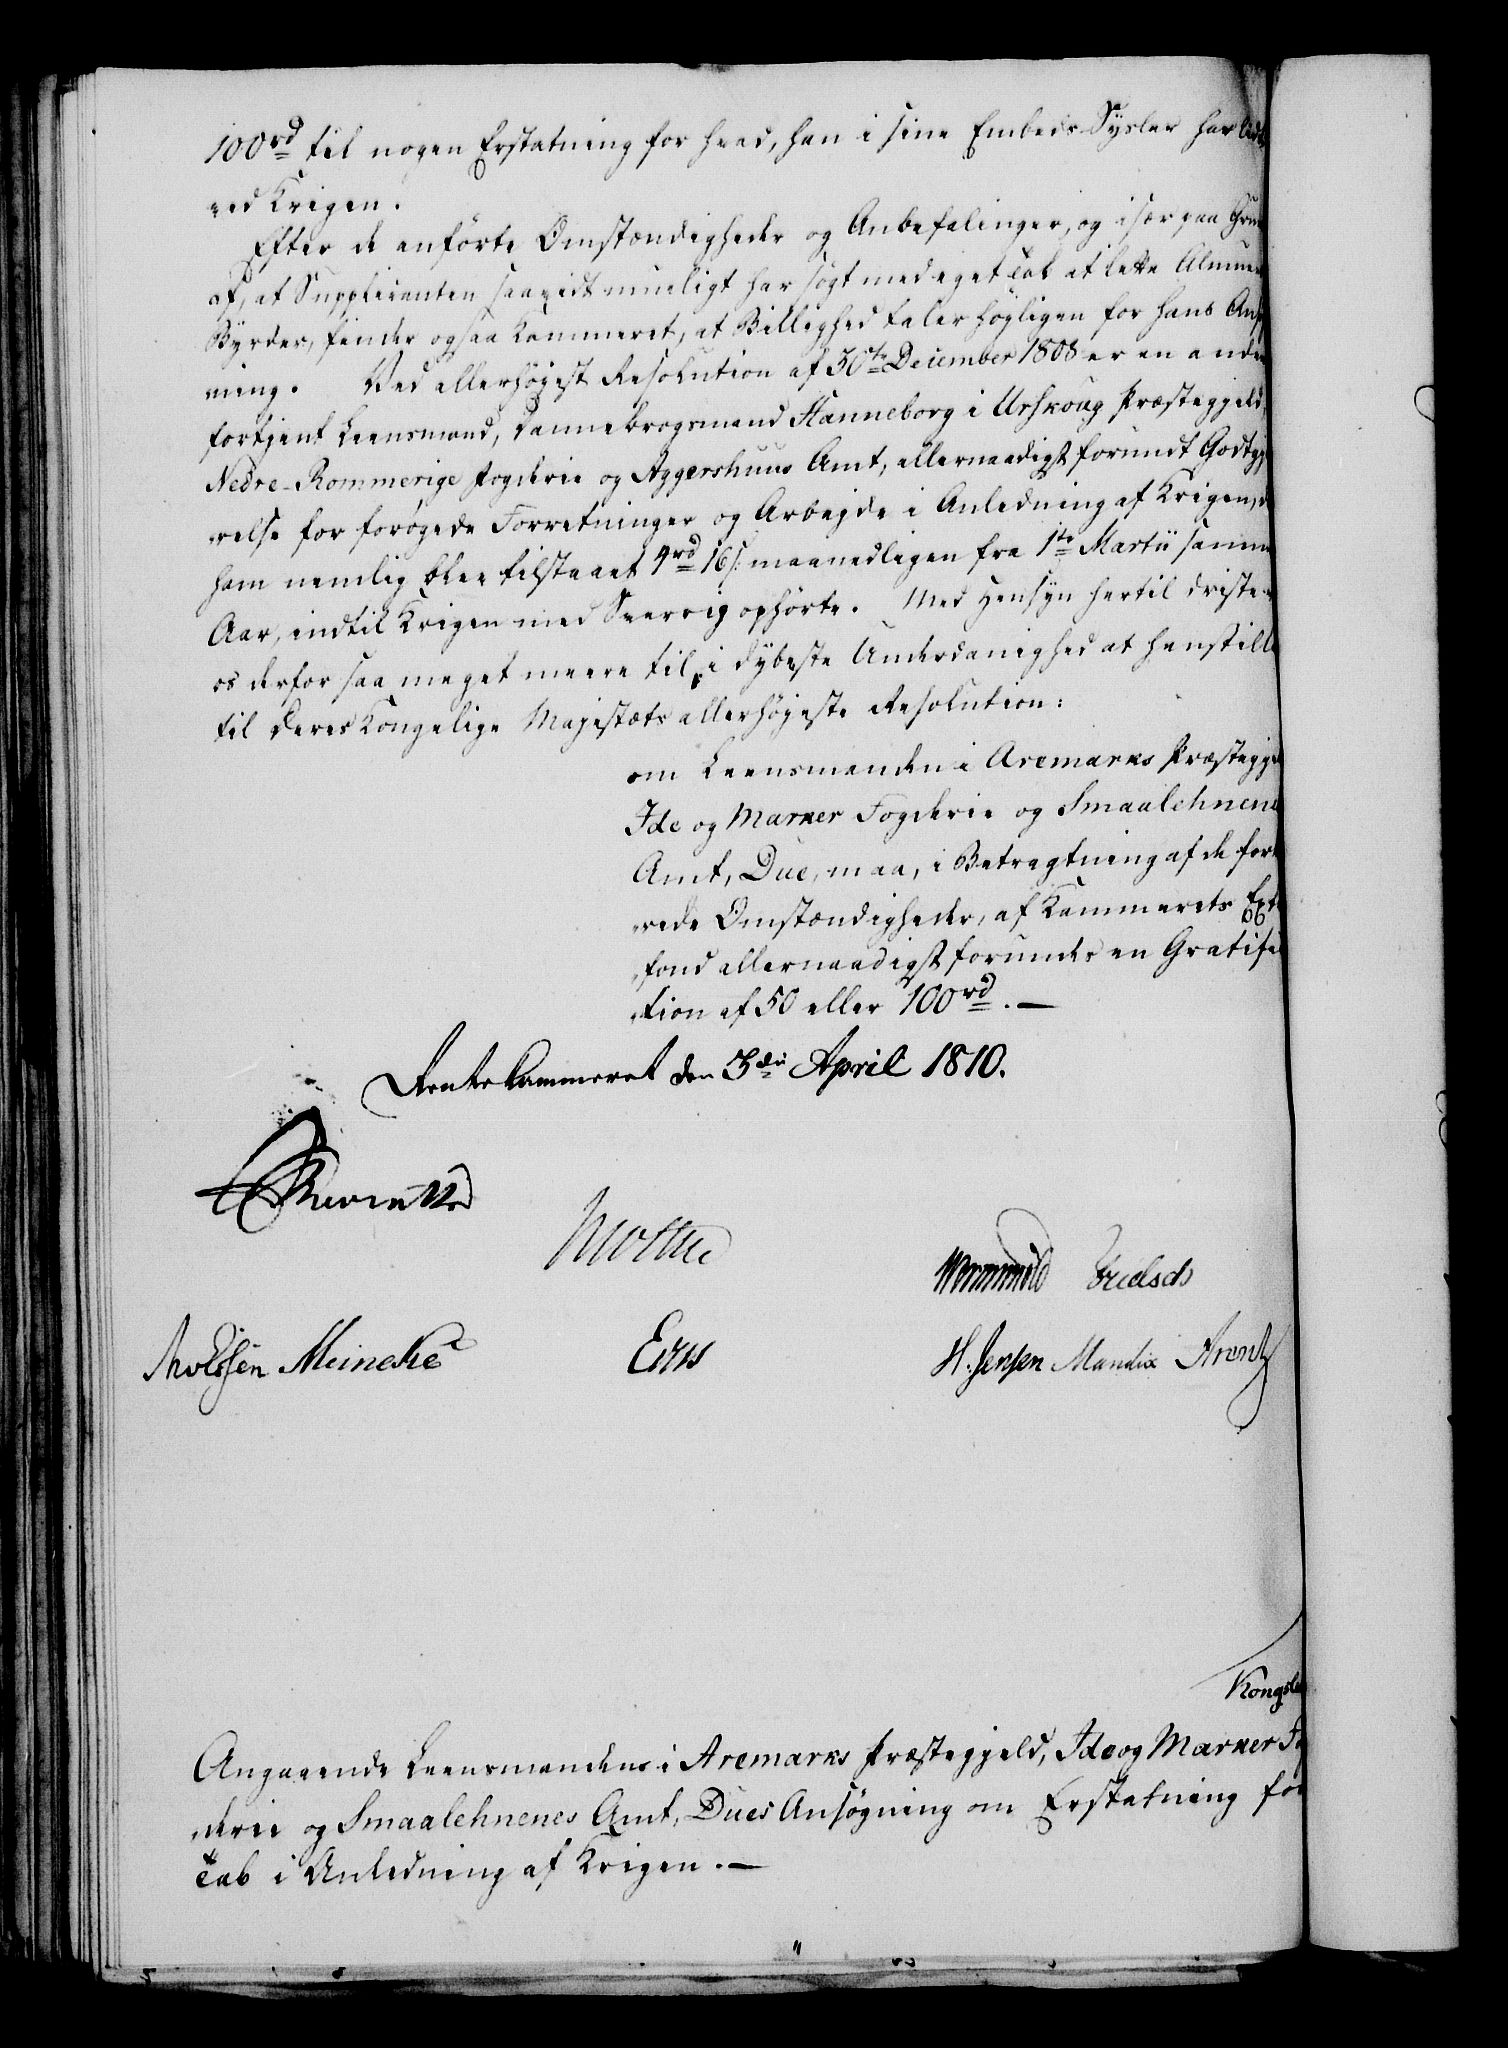 100rd til nogen Erstatning for hvad, han i sine Embeds-Sysler har lidt
ved Krigen.
Efter de anförte Omstændigheder og Anbefalinger, og især paa Grun
af, at Supplicanten saavidt mueligt har søgt med eget Tab at lette Almuens
Byrder, finder ogsaa Kammeret, at Billighed taler høyligen for hans Ansøg
ning. Ved allerhøyest Resolution af 30te December 1808 er en anden
fortjent Leensmand, Dannebrogsmand Hanneborg i Urskoug Præstegjeld,
Nedre-Rommerige Fogderie og Aggershuus Amt, allernaadigst forundt Godtgjø
relse for forøgede Forretninger og Arbejde i Anledning af Krigen, d
ham nemlig blev tilstaaet 4rd 16s: maanedligen fra 1te Martii samme
Aar, indtil Krigen med Sverrig ophørte. Med Hensyn hertil driste vi
os derfor saa meget meere til, i dybeste Underdanighed at henstille
til Deres Kongelige Majestæts allerhøyeste Resolution:
om Leensmanden i Aremarks Præstegjel
Ide og Marker Fogderie og Smaalehnenes
Amt, Due, maa, i Betragtning af de forte
rede Omstændigheder, af Kammerets Extra
fond allernaadigst forundes en Gratifica
tion af 50 eller 100rd. —
Rentekammeret den 3die April 1810.
Reventlow
Moltke
Wormskiold Bredsch
Knoblsen Meincke
Erns
H. Jensen Mandix Arentz
Kongsl
Angaaende Leensmandens i Aremarks Præstegjeld, Ide og Marker Fog
derie og Smaalehnenes Amt, Dues Ansøgning om Erstatning for
Tab i Anledning af Krigen. —